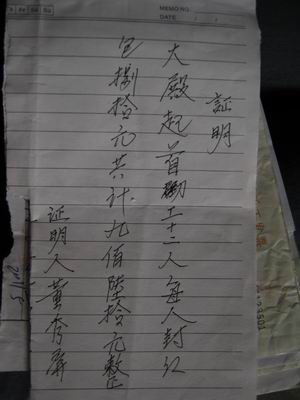 MEMO NO.
DATE / /
証明
大殿起首工十二人每人封红
包捌拾元共计九佰陸拾元整
证明人董秀